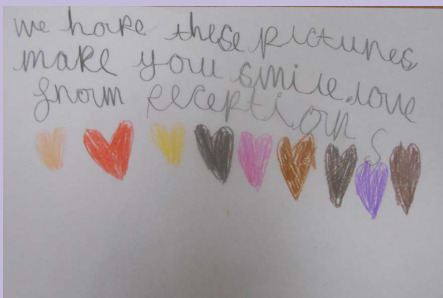 we hope these pictures
make you smile. love
from Reception
S